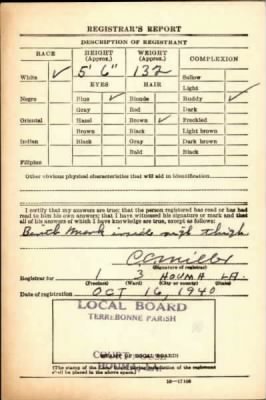 REGISTRAR'S REPORT
DESCRIPTION OF REGISTRANT
RACE HEIGHT (Approx.) WEIGHT (Approx.) COMPLEXION
White ✓ 5' 6" 132 Sallow
Light
EYES HAIR
Negro Blue ✓ Blonde Ruddy ✓
Gray Red Dark
Oriental Hazel Brown ✓ Freckled
Brown Black Light brown
Indian Black Gray Dark brown
Bald Black
Filipino
Other obvious physical characteristics that will aid in identification
I certify that my answers are true; that the person registered has read or has had
read to him his own answers; that I have witnessed his signature or mark and that
all of his answers of which I have knowledge are true, except as follows:
Birth Mark inside thigh
(Signature of registrar)
Registrar for 1 3 HOUMA LA.
(Precinct) (Ward) (City or county) (State)
Date of registration OCT 16, 1940
LOCAL BOARD
TERREBONNE PARISH
(STAMP OF LOCAL BOARD)
(The stamp of the Local Board having jurisdiction of the registrant
shall be placed in the above space.)